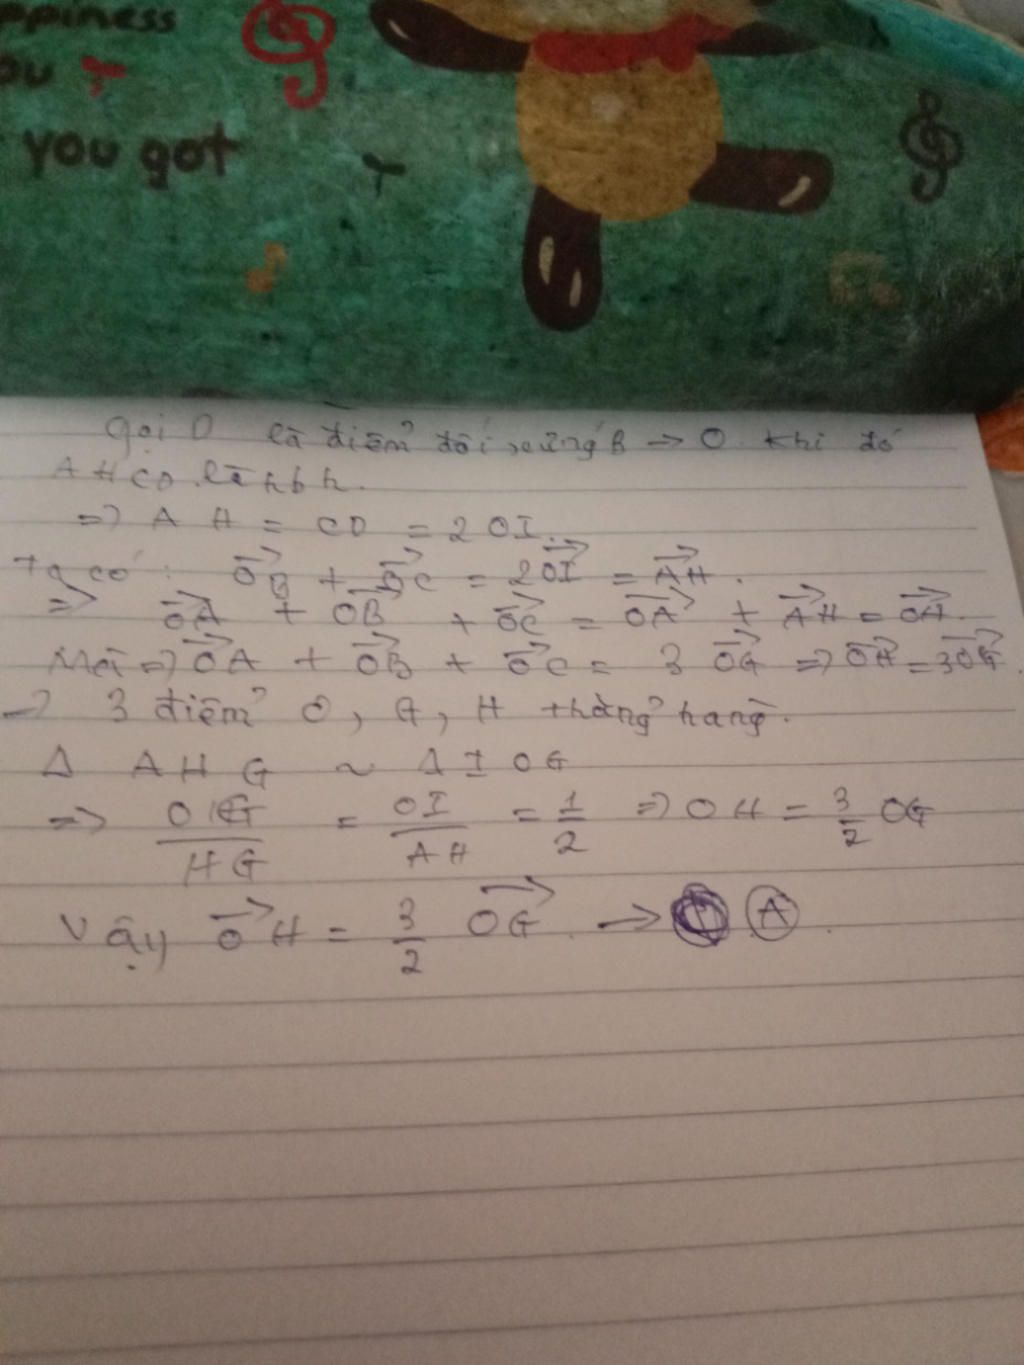 ppiness
ou
you got
Gọi D là điểm đối xứng B → O. Khi đó
AHCD là hbh.
=> AH = CD = 2OI.
Ta có: \vec{OB} + \vec{BC} = 2\vec{OI} = \vec{AH}.
=> \vec{OA} + \vec{OB} + \vec{OC} = \vec{OA} + \vec{AH} = \vec{OH}.
Mà => \vec{OA} + \vec{OB} + \vec{OC} = 3\vec{OG} => \vec{OH} = 3\vec{OG}.
→ 3 điểm O, G, H thẳng hàng.
Δ AHG ~ Δ IOG
=> \frac{OG}{HG} = \frac{OI}{AH} = \frac{1}{2} => OH = \frac{3}{2} OG
Vậy \vec{OH} = \frac{3}{2} \vec{OG}. → A.